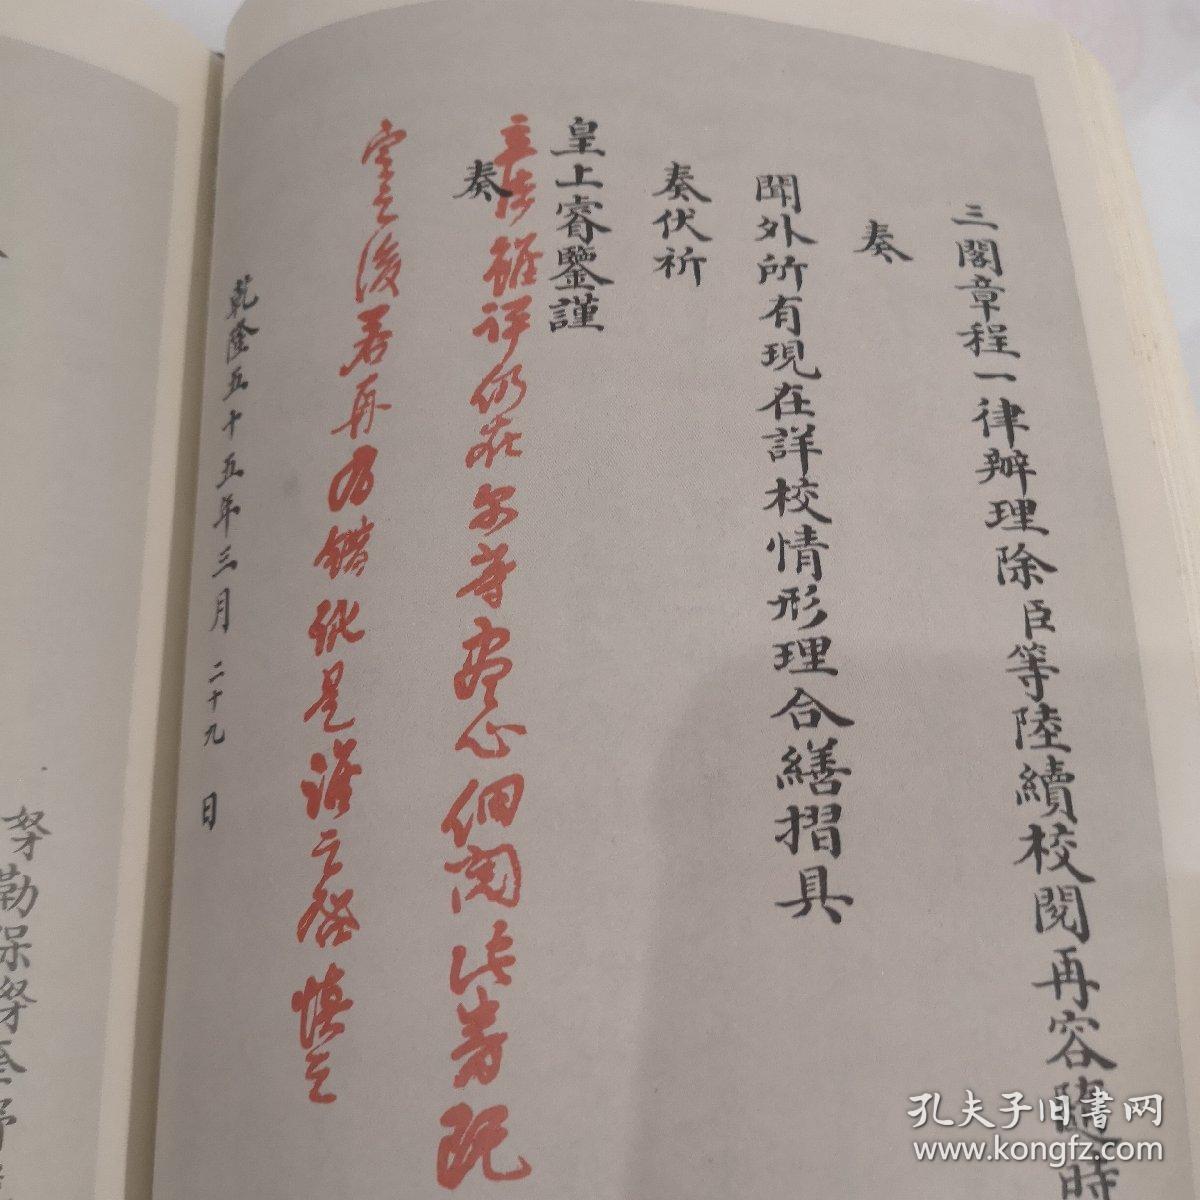 三閣章程一律辦理除臣等陸續校閱再容隨時
奏
聞外所有現在詳校情形理合繕摺具
奏伏祈
皇上睿鑒謹
奏
立法雖詳仍在爾等盡心細閱此番既
定之後若再有錯訛是誰之咎慎之
乾隆五十五年三月二十九日
勒保
孔夫子旧书网
www.kongfz.com